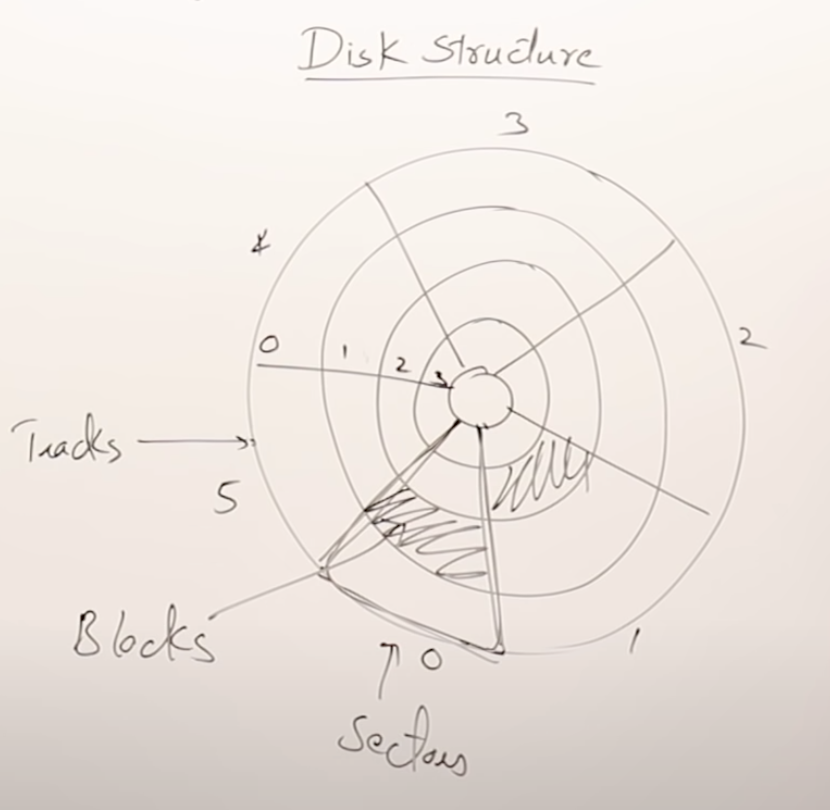 Disk Structure
3
4
2
0 1 2 3
Tracks
5
Blocks
0
1
Sectors